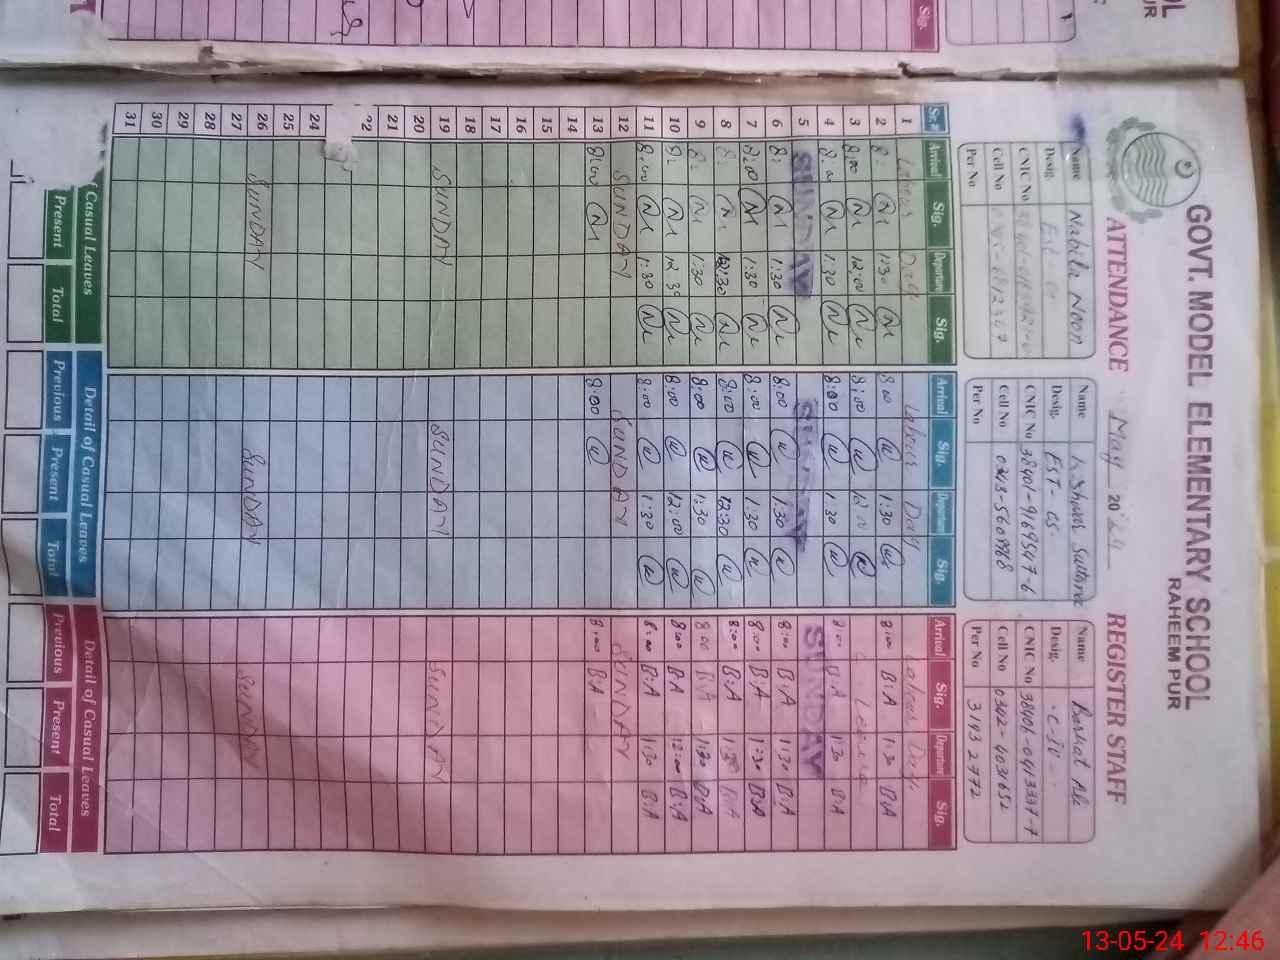 GOVT. MODEL ELEMENTARY SCHOOL
RAHEEM PUR
ATTENDANCE May 2024 REGISTER STAFF
Name Nabila Noor
Desig.
CNIC No
Cell No
Per No
Name Sultana
Desig. EST - CS.
CNIC No 38401-9169547-6
Cell No
Per No
Name Ali
Desig. C-IV
CNIC No 38406-0413337-7
Cell No 0342-4031652
Per No 31432772
Sr. # Arrival Sig. Departure Sig. Arrival Sig. Departure Sig. Arrival Sig. Departure Sig.
1 Labour Day Labour Day Labour Day
2 1:30 8:00 1:30 8:00 B.A 1:30 B.A
3 8:00 12:00 8:00 12:00 Leave
4 1:30 8:00 1:30 8:00 B.A 1:30 B.A
5 SUNDAY SUNDAY SUNDAY
6 1:30 8:00 1:30 8:00 B.A 1:30 B.A
7 8:00 1:30 8:00 1:30 8:00 B.A 1:30 B.A
8 12:30 8:00 12:30 8:00 B.A B.A
9 1:30 8:00 1:30 8:00 B.A B.A
10 12:30 8:00 12:00 8:00 B.A 12:00 B.A
11 8:00 1:30 8:00 1:30 8:00 B.A 1:30 B.A
12 SUNDAY SUNDAY SUNDAY
13 8:00 8:00 8:00 B.A
14
15
16
17
18
19 SUNDAY SUNDAY SUNDAY
20
21
22
24
25
26 SUNDAY SUNDAY SUNDAY
27
28
29
30
31
Casual Leaves Detail of Casual Leaves Detail of Casual Leaves
Present Total Previous Present Total Previous Present Total
Sig.
13-05-24 12:46